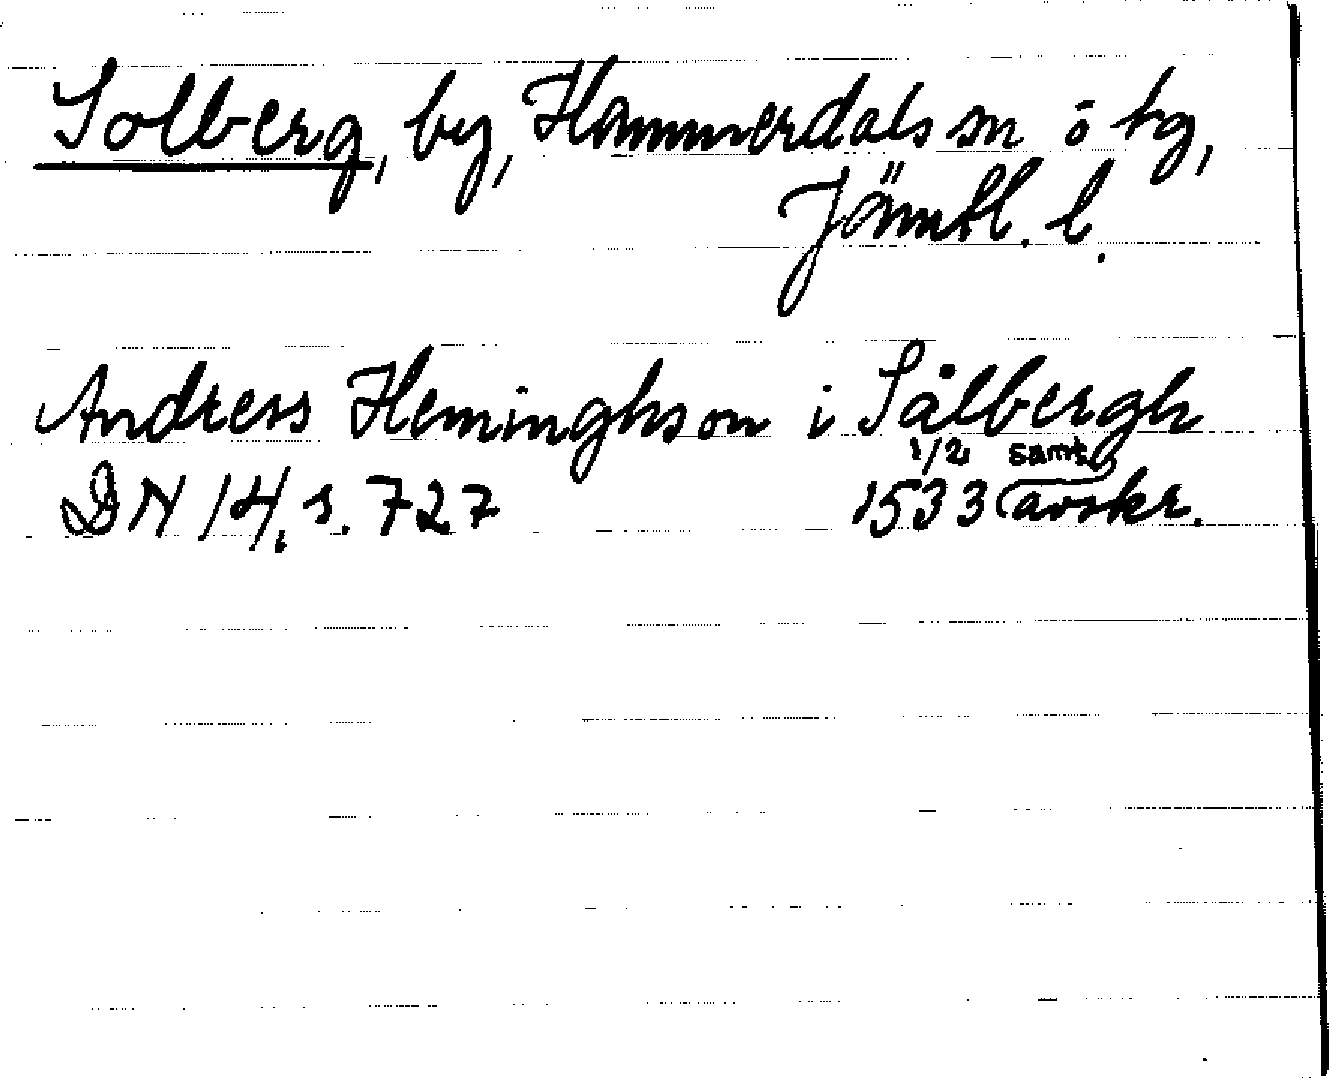 Solberg, by, Hammerdals sn ö tg,
Jämtl. l.
Andress Heminghson i Sålbergh
DN 14, s. 727 1533 1/2 samt. avskr.